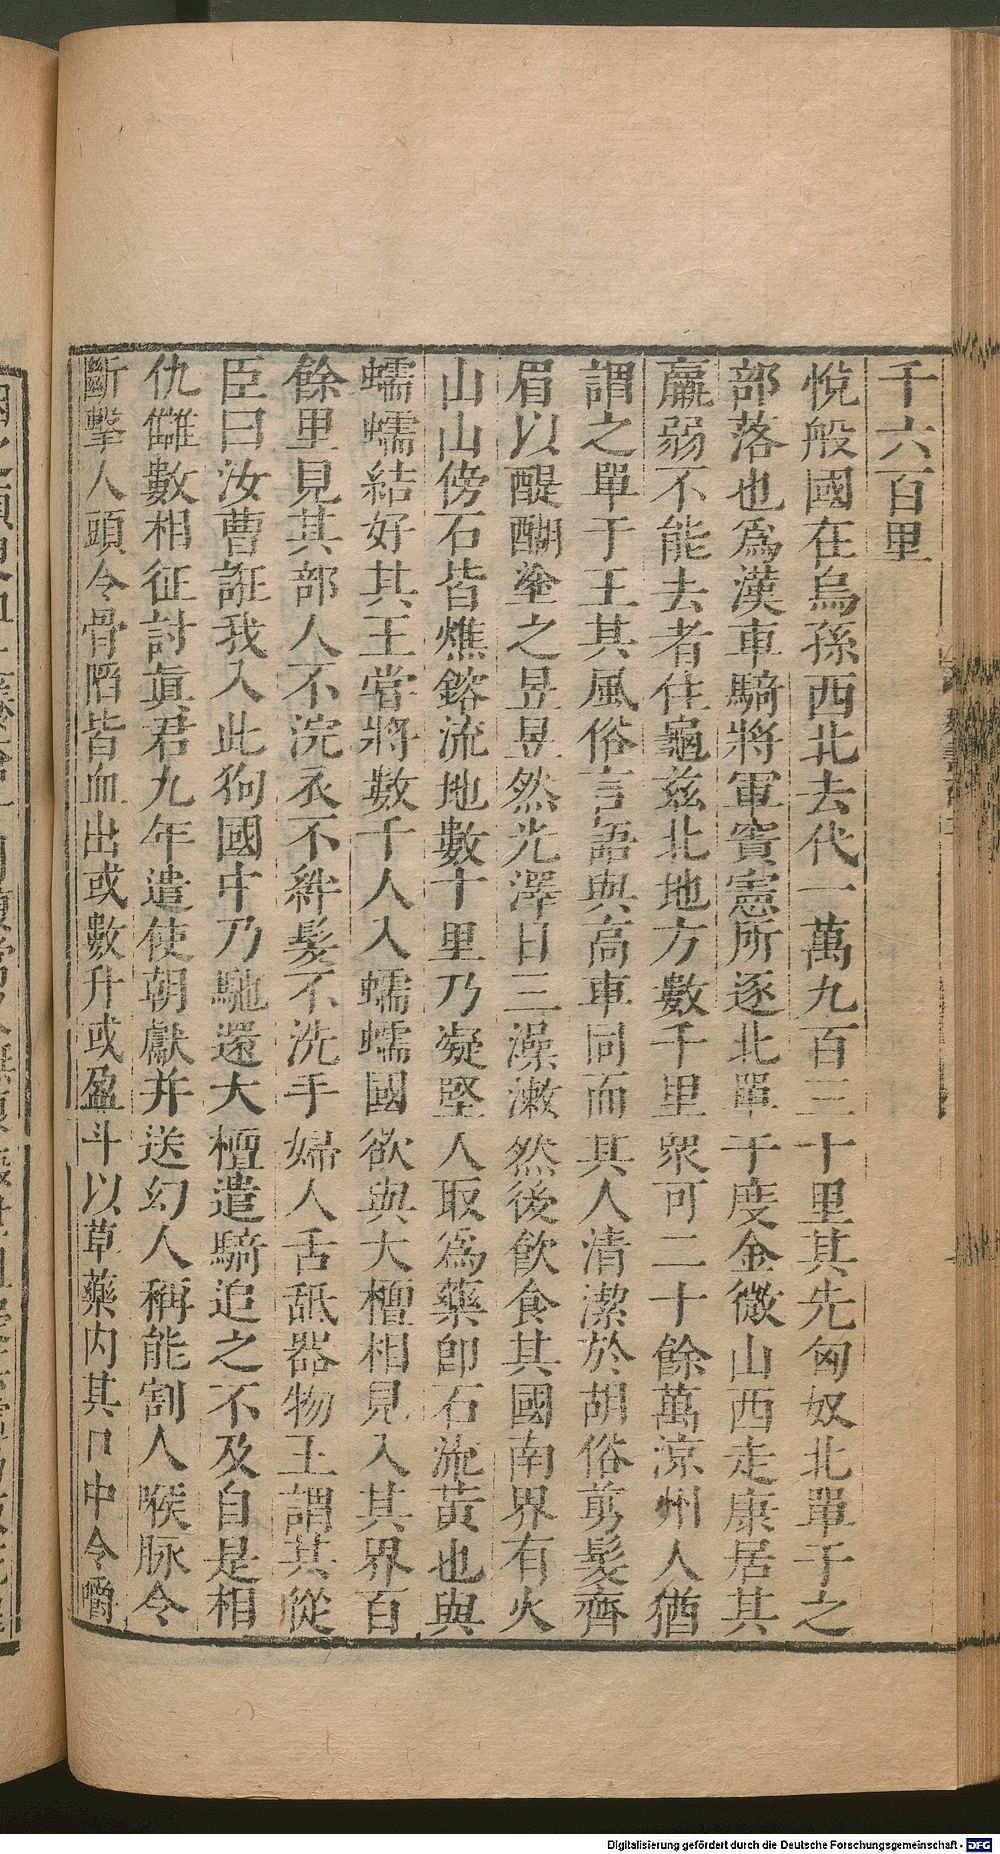 千六百里
悅般國在烏孫西北去代一萬九百三十里其先匈奴北單于之
部落也爲漢車騎將軍竇憲所逐北單于度金微山西走康居其
羸弱不能去者住龜茲北地方數千里衆可二十餘萬涼州人猶
謂之單于王其風俗言語與高車同而其人清潔於胡俗剪髮齊
眉以醍醐塗之昱昱然光澤日三澡漱然後飲食其國南界有火
山山傍石皆燋鎔流地數十里乃凝堅人取爲藥卽石流黃也與
蠕蠕結好其王嘗將數千人入蠕蠕國欲與大檀相見入其界百
餘里見其部人不浣衣不絆髮不洗手婦人舌舐器物王謂其從
臣曰汝曹誑我入此狗國中乃馳還大檀遣騎追之不及自是相
仇讎數相征討眞君九年遣使朝獻并送幻人稱能割人喉脉令
斷擊人頭令骨陷皆血出或數升或盈斗以草藥内其口中令嚼
Digitalisierung gefördert durch die Deutsche Forschungsgemeinschaft - DFG